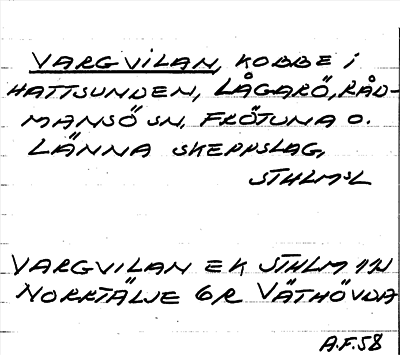 VARGVILAN, KOBBE i
HATTSUNDEN, LÅGARÖ, RÅD-
MANSÖ SN, FRÖTUNA O.
LÄNNA SKEPPSLAG,
STHLMSL
VARGVILAN EK STHLM 11N
NORRTÄLJE 6R VÄTHÖVDA
A.F.58